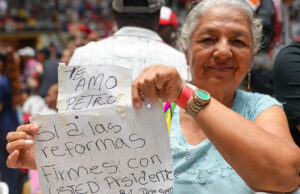 TE
AMO
PETRO
Sí a las
reformas
Firmes con
USTED Presidente